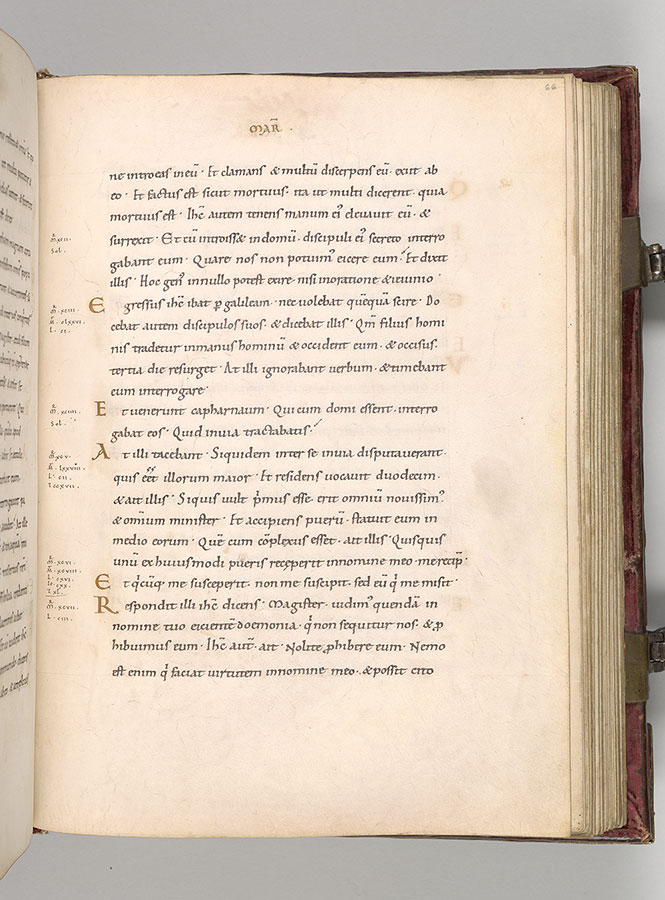 66
MAR̄ ·
ne introeas in eū · Et clamans & multū discerpens eū · exiit ab
eo · Et factus est sicut mortuus · ita ut multi dicerent · quia
mortuus est · Ihc̄ autem tenens manum ei' eleuauit eū · &
surrexit · Et cū introisset in domū · discipuli ei' secreto interro
gabant eum · Quare nos non potuim' eicere eum · Et dixit
illis · Hoc gen' in nullo potest exire · nisi in oratione & ieiunio ·
Egressus ihc̄ ibat ꝑ galileam · nec uolebat quēquā scire · Do
cebat autem discipulos suos · & dicebat illis · Qm̄ filius homi
nis tradetur in manus hominū & occident eum · & occisus ·
tertia die resurget · At illi ignorabant uerbum · & timebant
eum interrogare ·
Et uenerunt capharnaum · Qui cum domi essent · interro
gabat eos · Quid in uia tractabatis ·
At illi tacebant · Siquidem inter se in uia disputauerant ·
quis eēt illorum maior · Et residens uocauit duodecim ·
& ait illis · Si quis uult p̄mus esse · erit omniū nouissim'
& omnium minister · Et accipiens puerū · statuit eum in
medio eorum · Quē cum cōplexus esset · ait illis · Quisquis
unū ex huiusmodi pueris receperit in nomine meo · me recip̄ ·
Et q̄cūq; me susceperit · non me suscipit · sed eū q̄ me misit ·
Respondit illi ihc̄ dicens · Magister · uidim' quendā in
nomine tuo eicientē daemonia · q̄ non sequitur nos · & ꝓ
hibuimus eum · Ihc̄ aut̄ · ait · Nolite ꝓhibere eum · Nemo
est enim q̄ faciat uirtutem in nomine meo · & possit cito